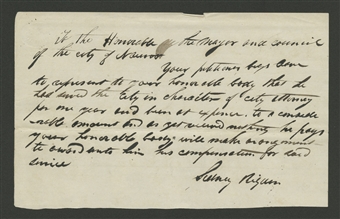 To the Honorable the Mayor and council
of the city of Nauvoo
Your petitioner begs leave
to represent to your honorable body that he
has served the City in character of city attorney
for one year and been at expence to a conside
rable amount and as yet received nothing he prays
your honorable body will make arrangment
to award unto him his compensation for said
service
Sidney Rigdon